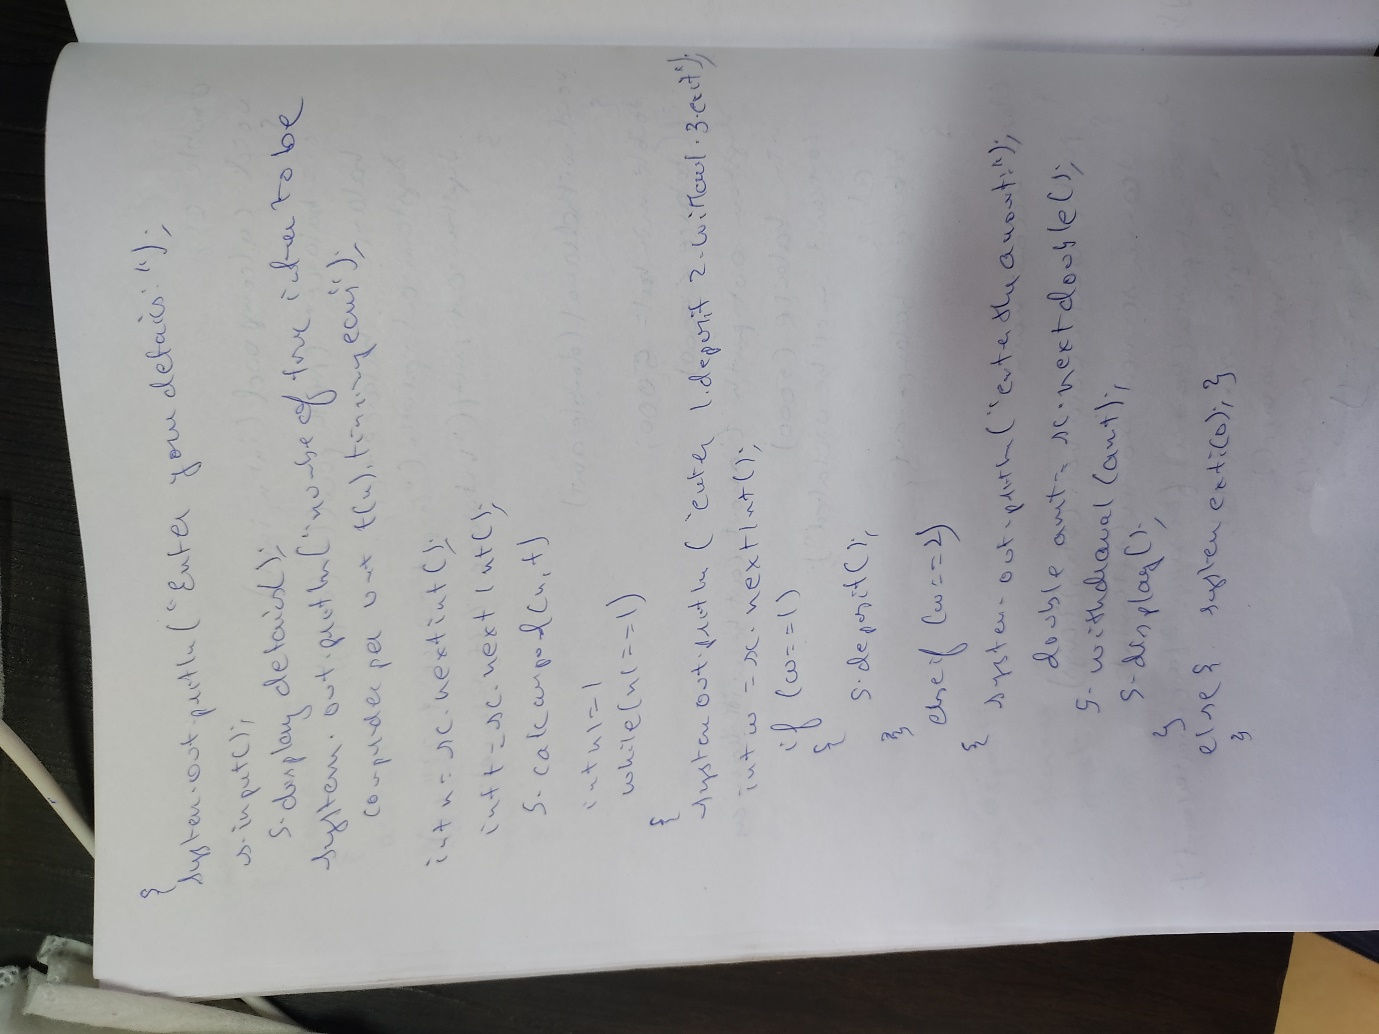 {
system.out.println("Enter your details:");
s.input();
s.display details();
system.out.println("number of time interest to be
compounded per unit t(n), time in years");
int n = sc.nextint();
int t = sc.next Int();
S. calcampond(n,t)
int n1=1
while(n1==1)
{
system out println ("enter 1.deposit 2.withdawl.3.exit");
int w = sc.next Int();
if (w==1)
{
s.deposit();
}
else if (w==2)
{ system.out.println("enter the amount:");
double amt= sc.next double();
S. withdrawal (amt);
S.display();
}
else{ system exti(0); }
}